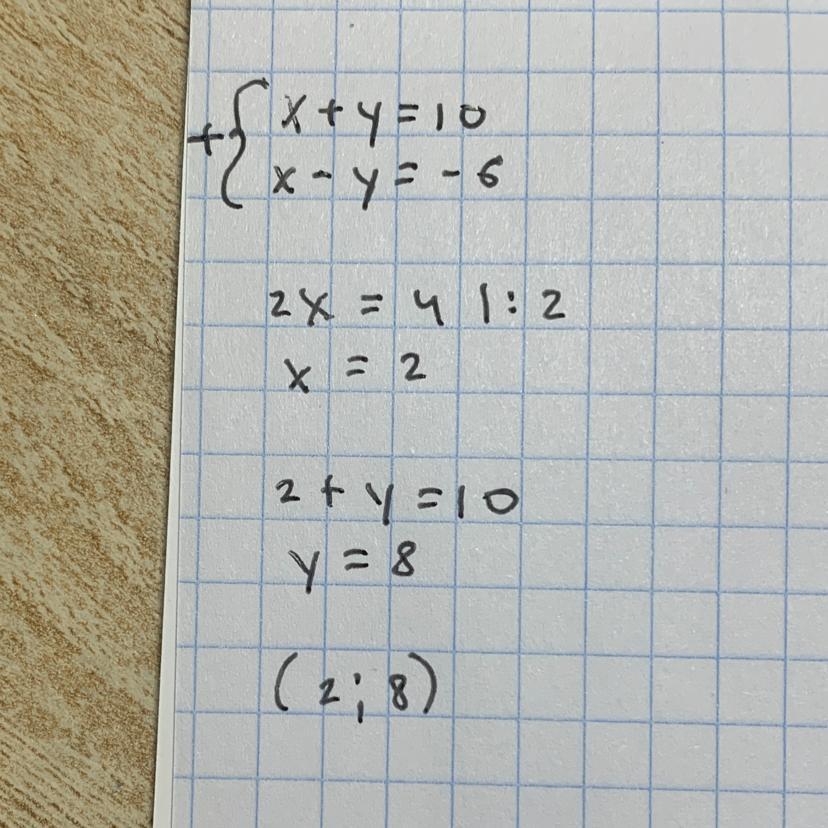 +{ x + y = 10
x - y = - 6
2x = 4 | : 2
x = 2
2 + y = 10
y = 8
(2; 8)